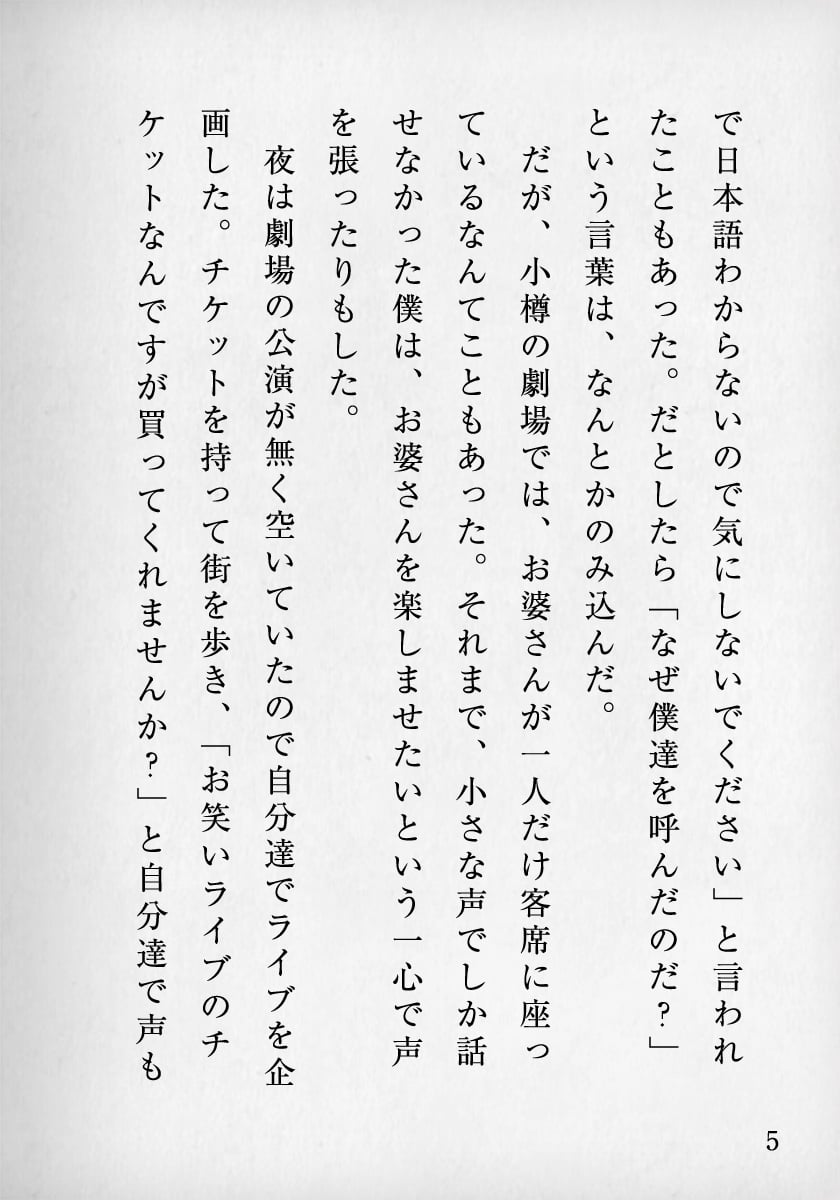 で日本語わからないので気にしないでください」と言われ
たこともあった。だとしたら「なぜ僕達を呼んだのだ？」
という言葉は、なんとかのみ込んだ。
だが、小樽の劇場では、お婆さんが一人だけ客席に座っ
ているなんてこともあった。それまで、小さな声でしか話
せなかった僕は、お婆さんを楽しませたいという一心で声
を張ったりもした。
夜は劇場の公演が無く空いていたので自分達でライブを企
画した。チケットを持って街を歩き、「お笑いライブのチ
ケットなんですが買ってくれませんか？」と自分達で声も
5